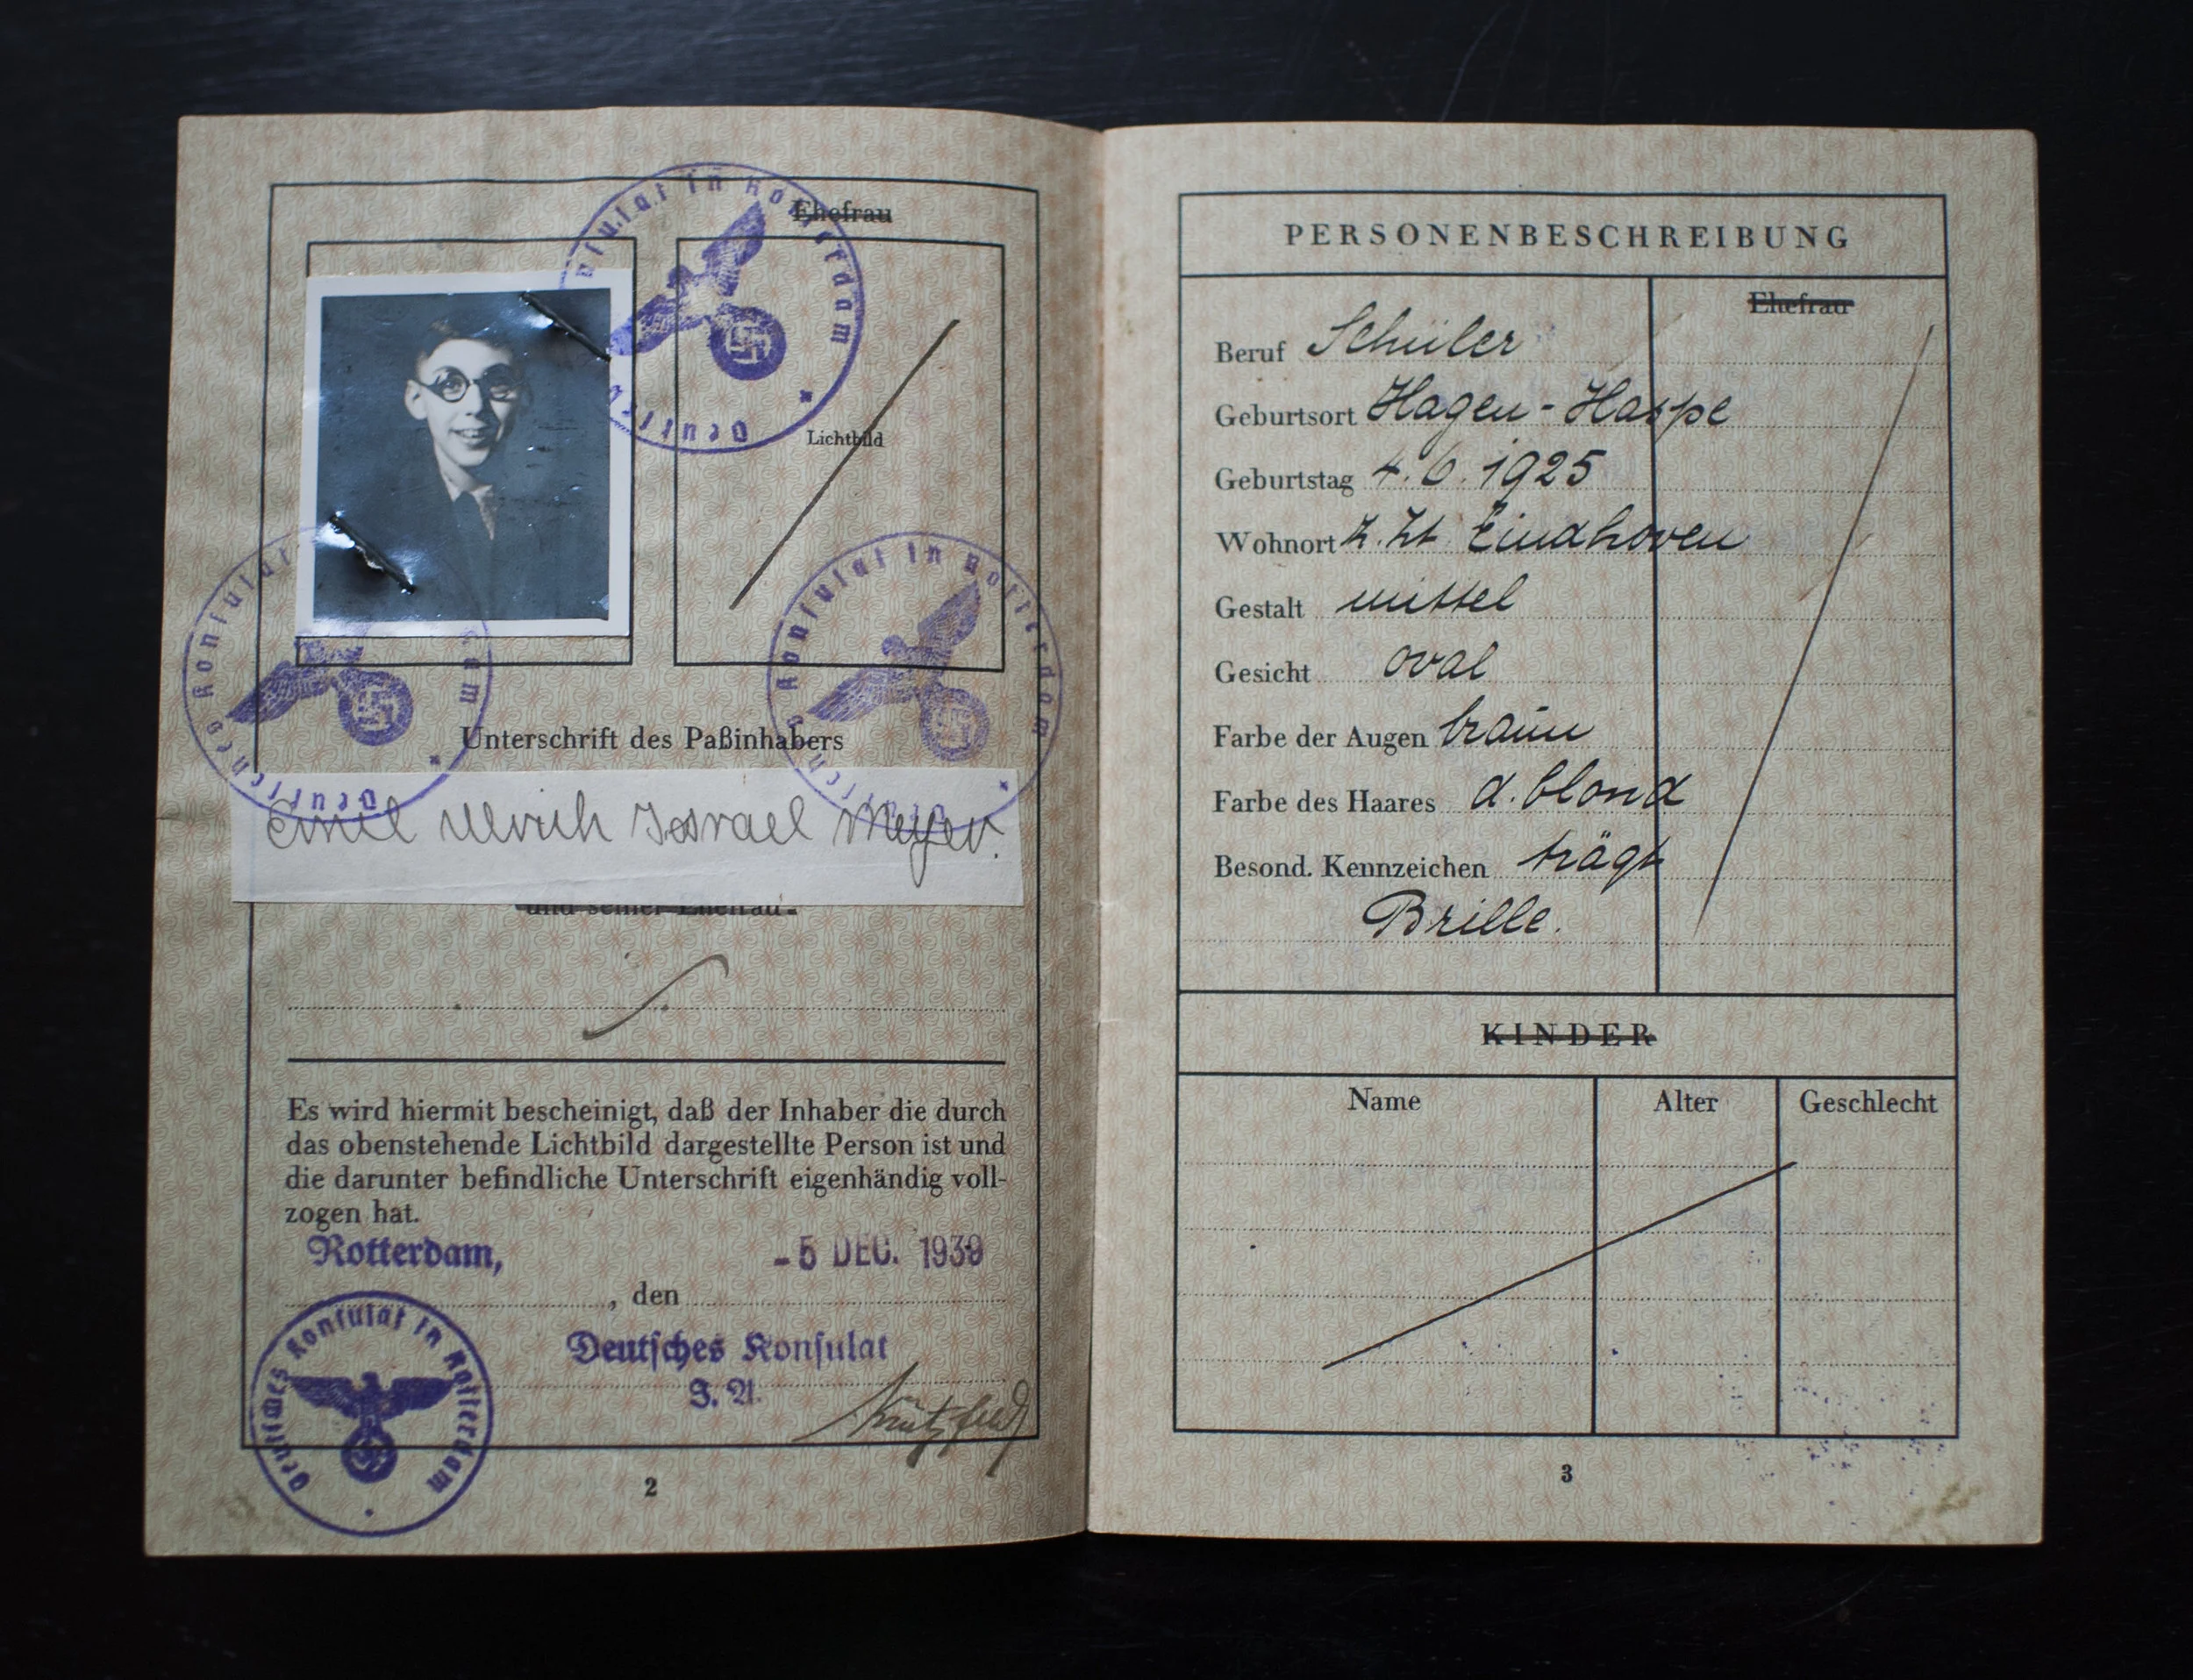 Ehefrau
Lichtbild
Deutsches Konsulat in Rotterdam
Deutsches Konsulat in Rotterdam
Deutsches Konsulat in Rotterdam
Unterschrift des Paßinhabers
Emil Ulrich Israel Meyer.
und seiner Ehefrau
Es wird hiermit bescheinigt, daß der Inhaber die durch
das obenstehende Lichtbild dargestellte Person ist und
die darunter befindliche Unterschrift eigenhändig voll-
zogen hat.
Rotterdam, - 5 DEC. 1939
, den
Deutsches Konsulat
I. A.
Deutsches Konsulat in Rotterdam
2
PERSONENBESCHREIBUNG
Ehefrau
Beruf Schüler
Geburtsort Hagen-Haspe
Geburtstag 4.6.1925
Wohnort z. Zt. Eindhoven
Gestalt mittel
Gesicht oval
Farbe der Augen braun
Farbe des Haares d. blond
Besond. Kennzeichen trägt
Brille.
KINDER
Name Alter Geschlecht
3